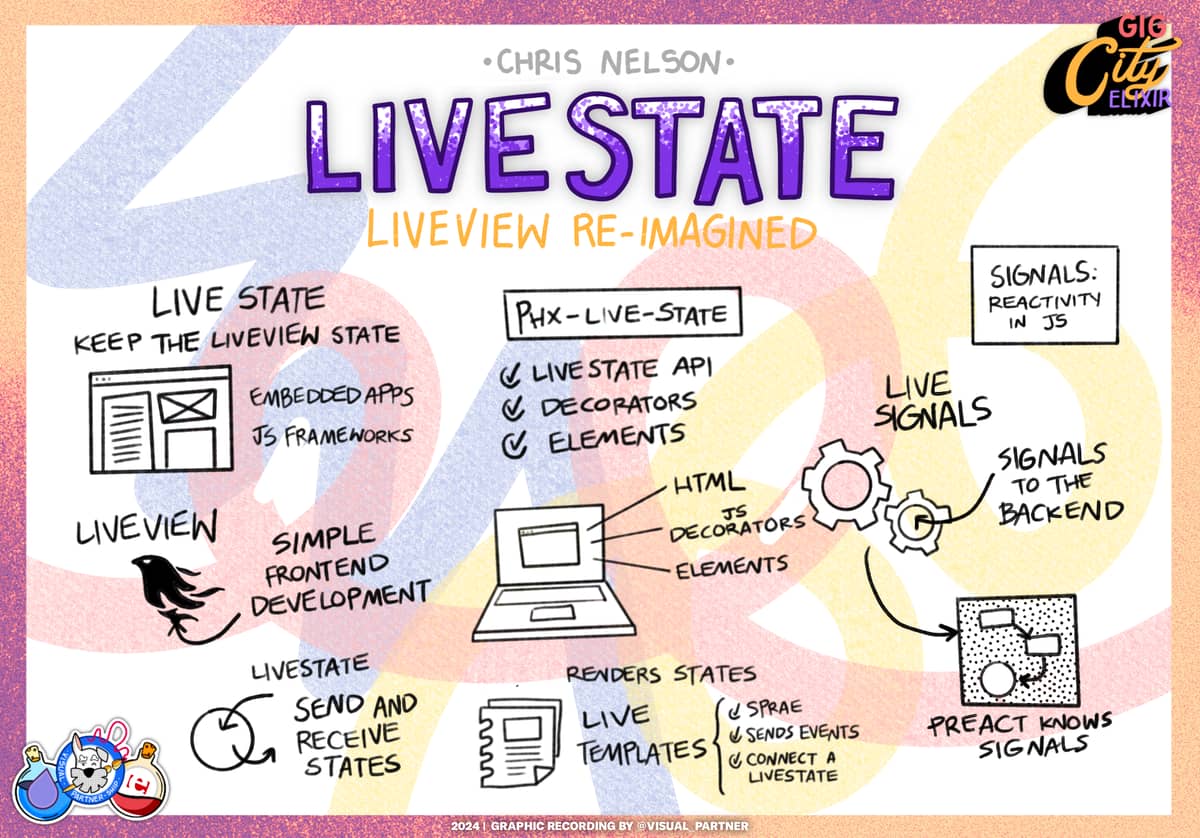 •CHRIS NELSON•
GIG
City
ELIXIR
LIVESTATE
LIVEVIEW RE-IMAGINED
LIVE STATE
KEEP THE LIVEVIEW STATE
EMBEDDED APPS
JS FRAMEWORKS
LIVEVIEW
SIMPLE
FRONTEND
DEVELOPMENT
LIVESTATE
SEND AND
RECEIVE
STATES
PHX-LIVE-STATE
LIVESTATE API
DECORATORS
ELEMENTS
HTML
JS
DECORATORS
ELEMENTS
RENDERS STATES
LIVE
TEMPLATES
SPRAE
SENDS EVENTS
CONNECT A
LIVESTATE
SIGNALS:
REACTIVITY
IN JS
LIVE
SIGNALS
SIGNALS
TO THE
BACKEND
PREACT KNOWS
SIGNALS
VISUAL
PARTNER-SHIP
2024 | GRAPHIC RECORDING BY @VISUAL_PARTNER